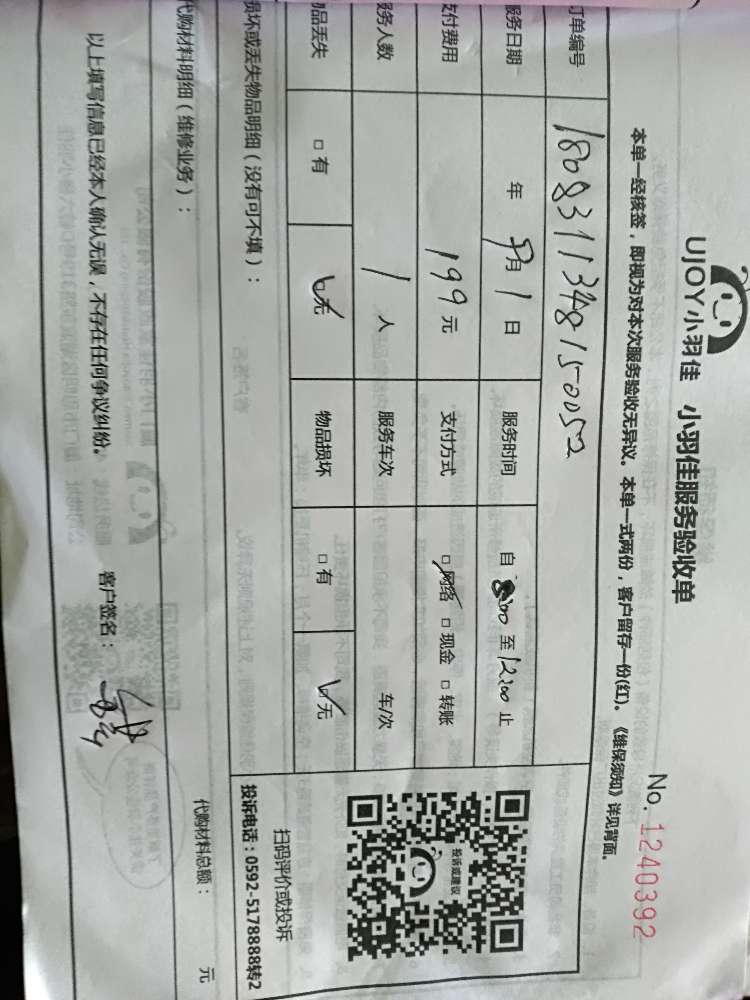 UJOY小羽佳 小羽佳服务验收单
No. 1240392
本单一经核签，即视为对本次服务验收无异议。本单一式两份，客户留存一份(红)、《维保须知》详见背面。
订单编号 1808311348150052
服务日期 年 9月 1 日 服务时间 自 8:00 至 12:00 止
支付费用 199 元 支付方式 □网络 □现金 □转账
服务人数 1 人 服务车次 车/次
物品丢失 □有 □无 物品损坏 □有 □无
投诉或建议
扫码评价或投诉
投诉电话：0592-5178888转2
损坏或丢失物品明细（没有可不填）：
代购材料明细（维修业务）： 代购材料总额： 元
以上填写信息已经本人确认无误，不存在任何争议纠纷。 客户签名：